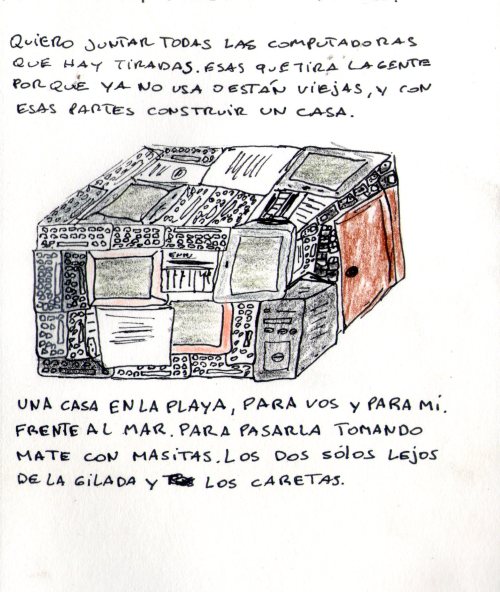 QUIERO JUNTAR TODAS LAS COMPUTADORAS
QUE HAY TIRADAS. ESAS QUE TIRA LA GENTE
PORQUE YA NO USA O ESTÁN VIEJAS, Y CON
ESAS PARTES CONSTRUIR UN CASA.
UNA CASA EN LA PLAYA, PARA VOS Y PARA MÍ.
FRENTE AL MAR. PARA PASARLA TOMANDO
MATE CON MASITAS. LOS DOS SÓLOS LEJOS
DE LA GILADA Y LOS CARETAS.